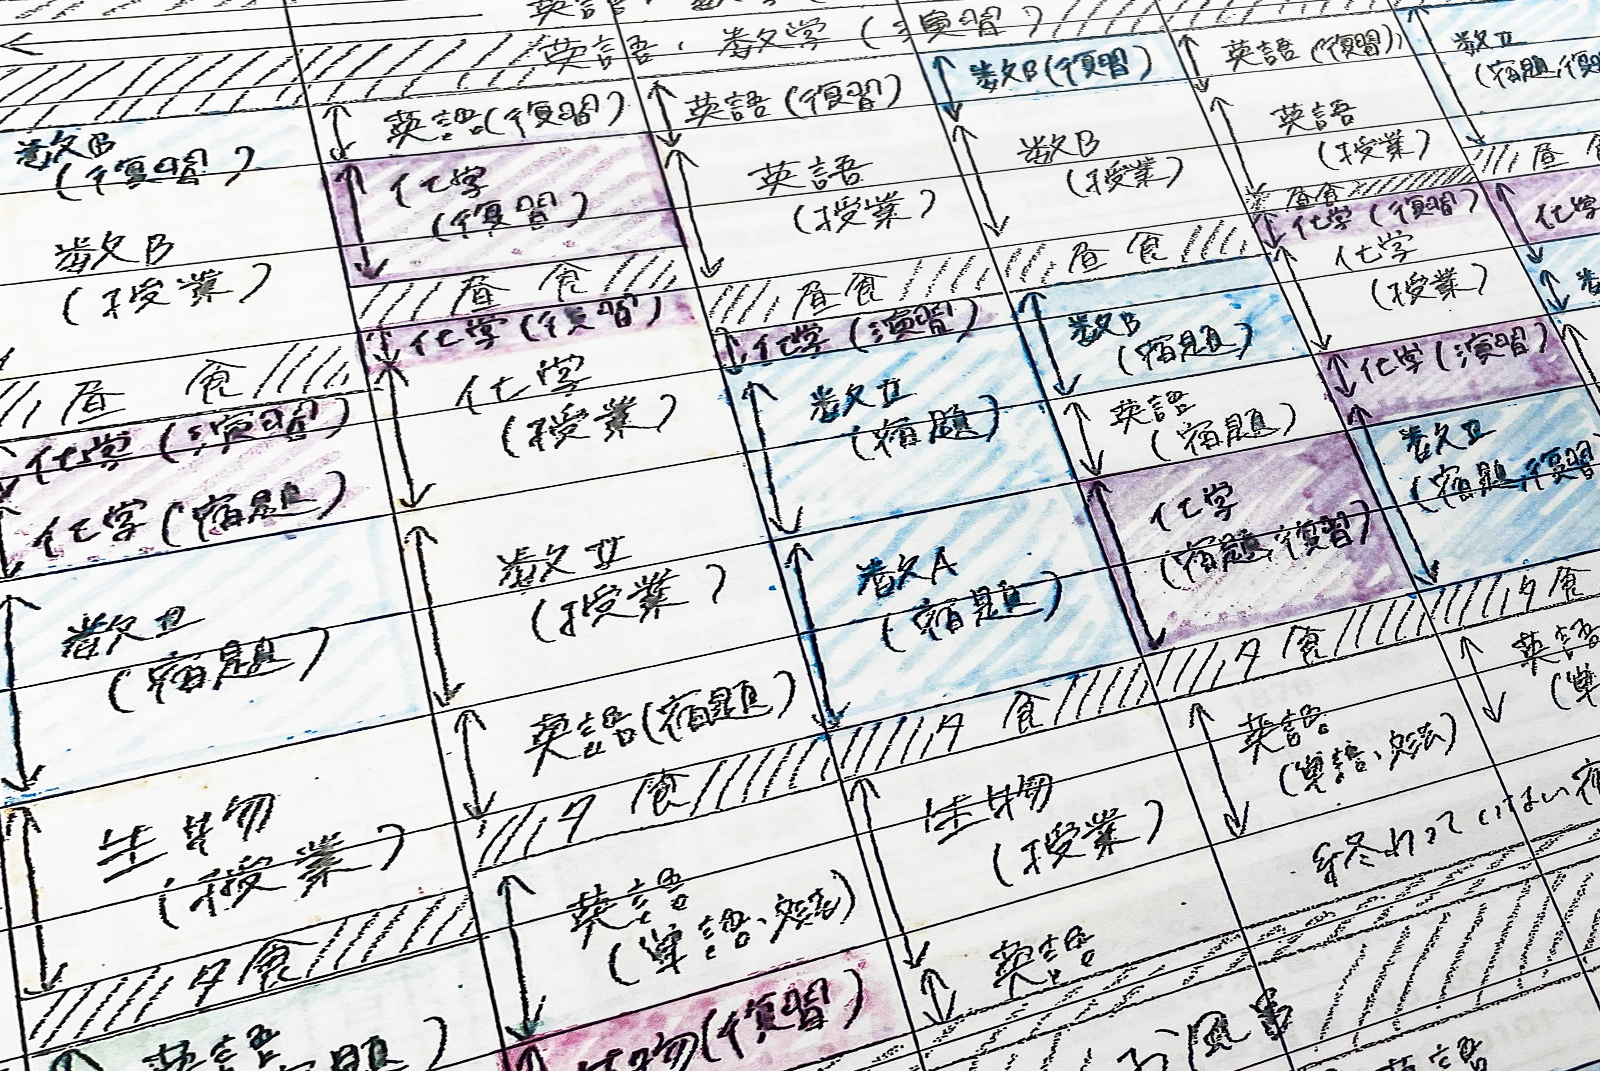 英語、数学(演習)
数B
(復習)
数B
(授業)
昼食
化学(演習)
化学(宿題)
数Ⅱ
(宿題)
生物
(授業)
夕食
英語
英語(復習)
化学
(復習)
昼食
化学(復習)
化学
(授業)
数Ⅱ
(授業)
英語(宿題)
夕食
英語
(単語、文法)
生物(復習)
英語(復習)
英語
(授業)
昼食
化学(演習)
数Ⅱ
(宿題)
数A
(宿題)
夕食
生物
(授業)
英語
お風呂
数B(復習)
数B
(授業)
昼食
数B
(宿題)
英語
(宿題)
化学
(宿題、復習)
夕食
英語
(単語、文法)
終わっていない
英語
英語(復習)
英語
(授業)
昼食
化学(復習)
化学
(授業)
化学(演習)
数Ⅱ
(宿題、復習)
夕食
英語
数Ⅱ
(宿題、復習
昼食
化学